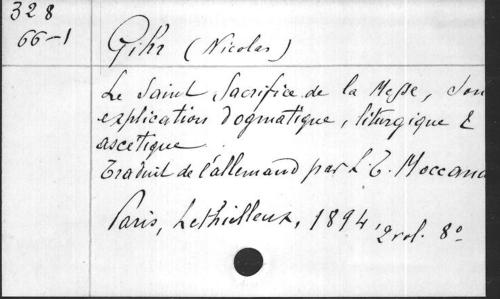 328
66-1
Gihr (Nicolas)
Le Saint Sacrifice de la Messe, Son
explication dogmatique, liturgique &
ascétique.
Traduit de l'allemand par L. T. Moccand
Paris, Lethielleux, 1894, 2 vol. 8°